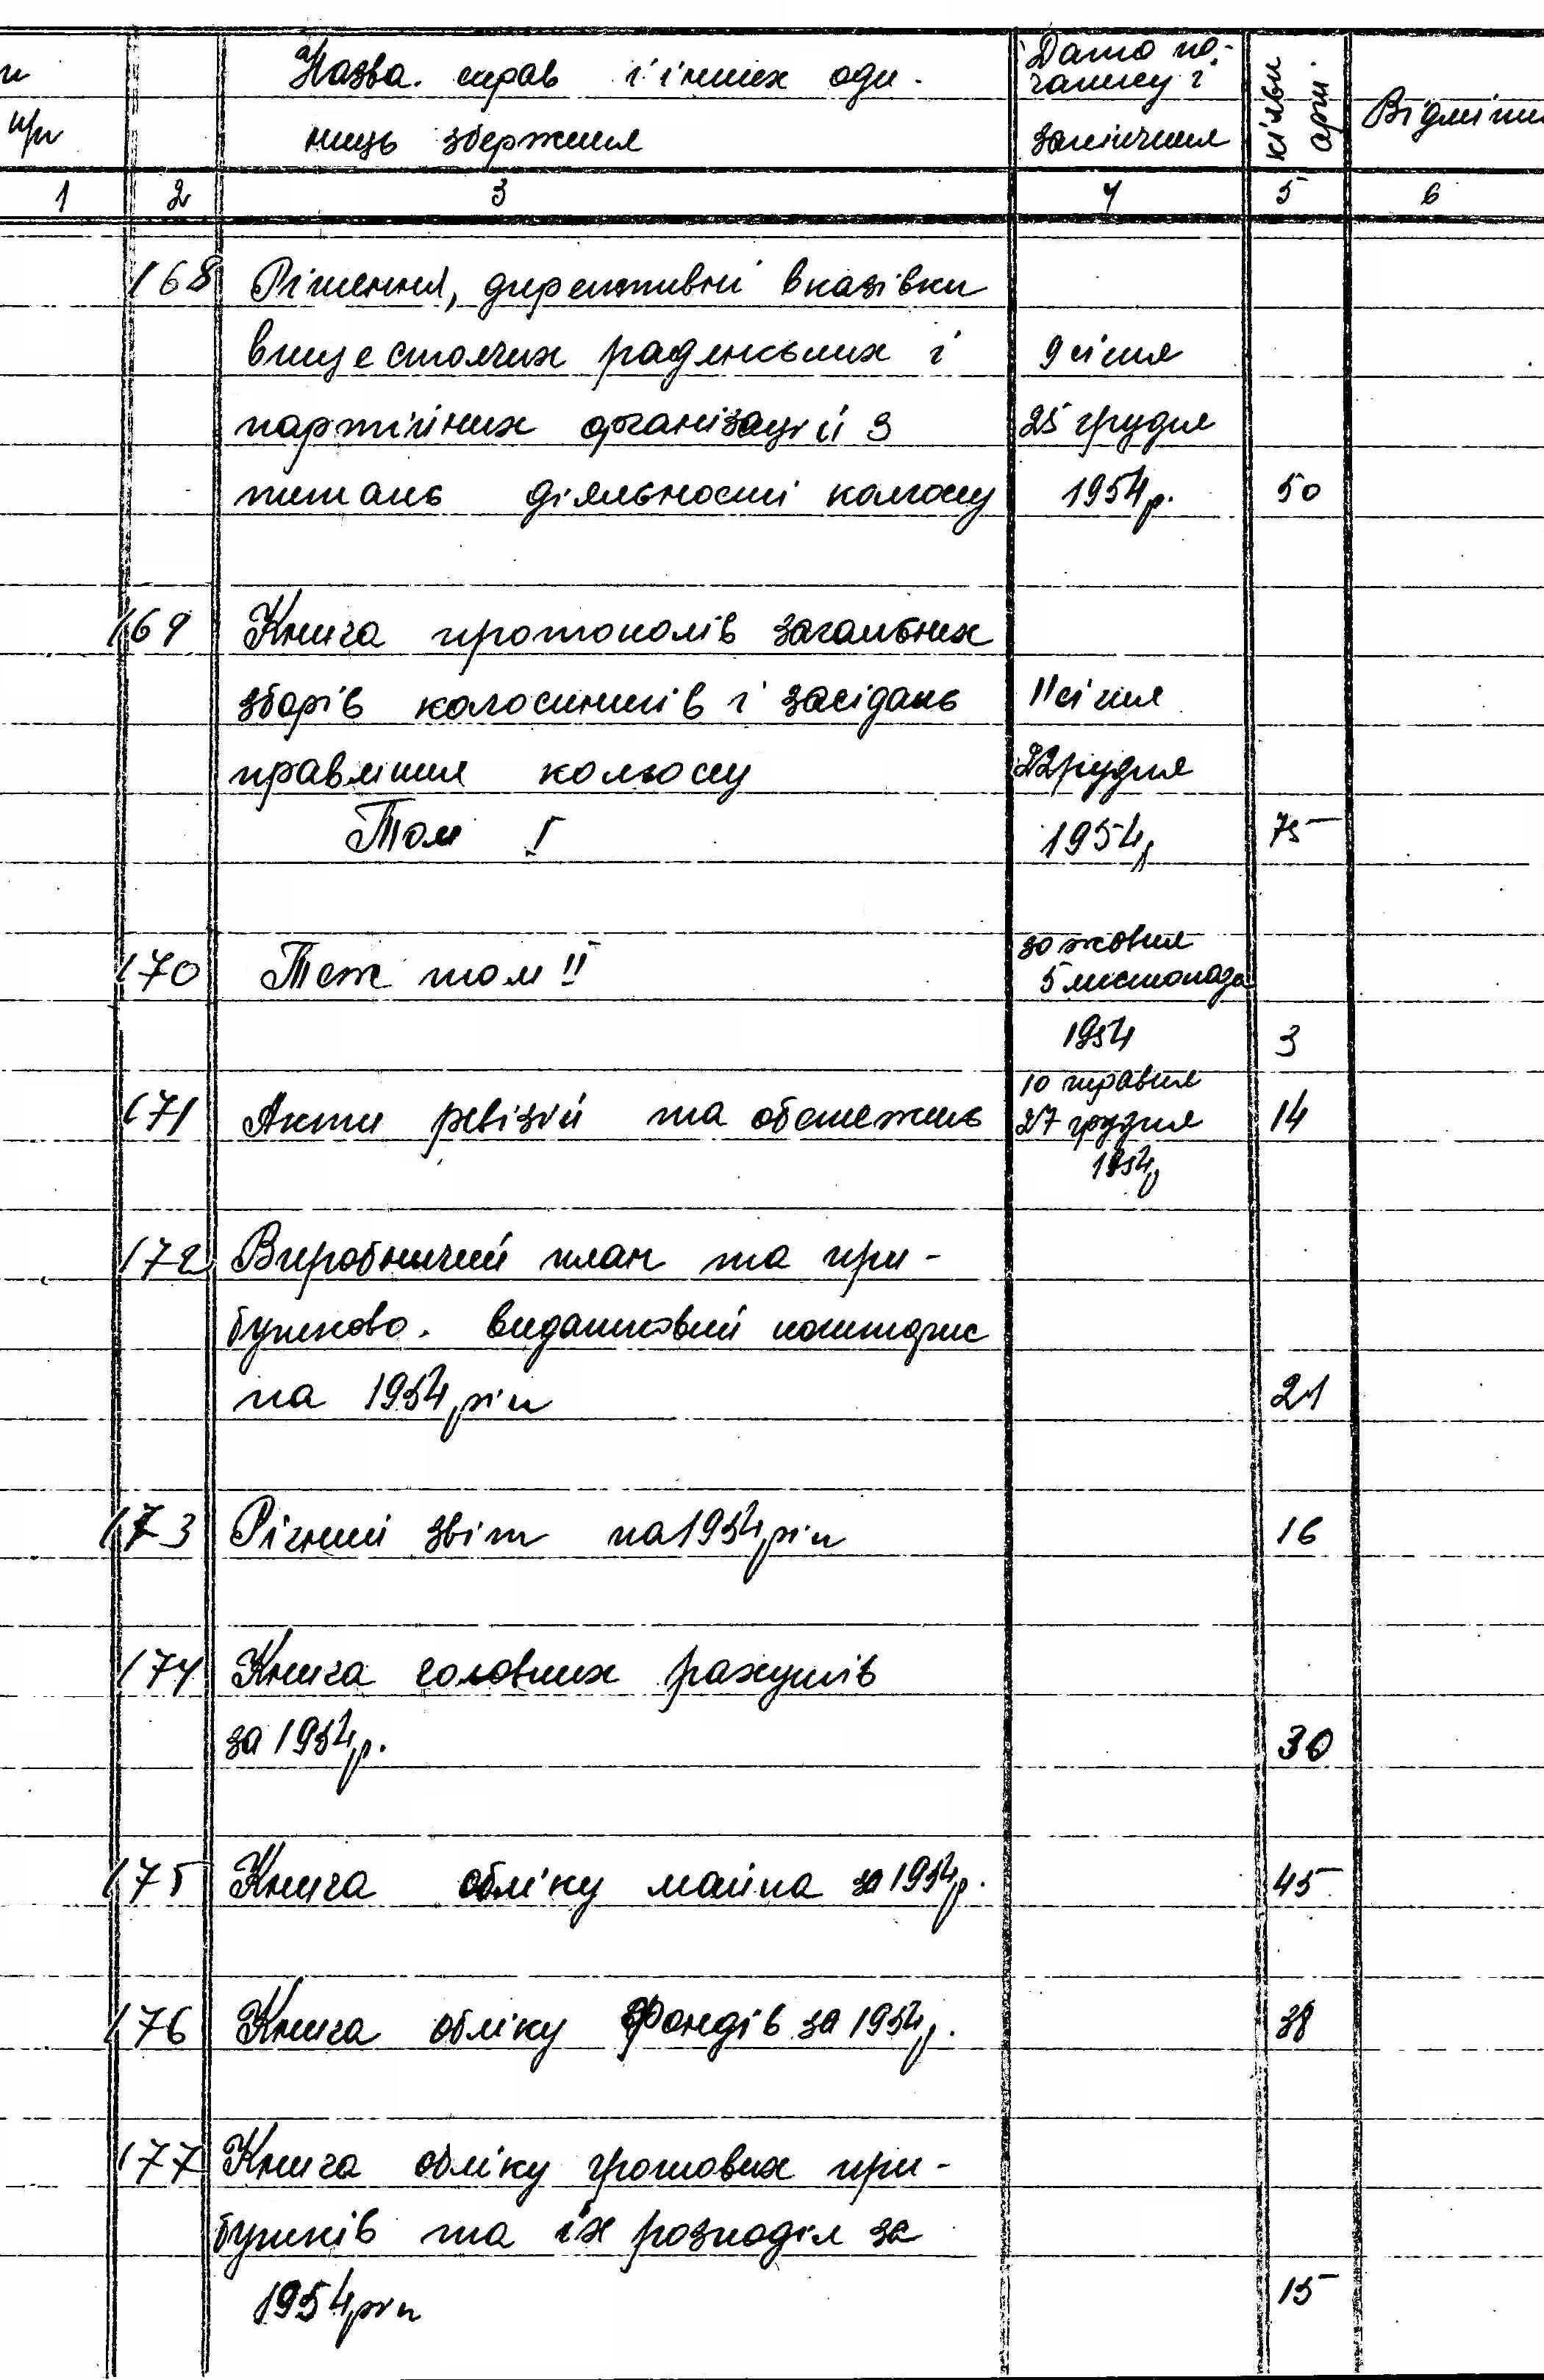 Назва справ і інших оди-
ниць збереження
Дата по-
чатку і
закінчення
кільк
арк.
Відмітк
п/п
1 2 3 4 5 6
168 Рішення, директивні вказівки
вищестоячих радянських і 9 січня
партійних організацій з 25 грудня
питань діяльності колгоспу 1954 р. 50
169 Книга протоколів загальних
зборів колгоспників і засідань 11 січня
правління колгоспу 22 грудня
Том I 1954р 75
30 жовтня
170 Теж том II 5 листопада
1954 3
10 травня
171 Акти ревізій та обстежень 27 грудня 14
1954р
172 Виробничий план та при-
бутково-видатковий кошторис
на 1954 рік 21
173 Річний звіт на 1954 рік 16
174 Книга головних рахунків
за 1954 р. 30
175 Книга обліку майна за 1954 р. 45
176 Книга обліку фондів за 1954 р. 38
177 Книга обліку грошових при-
бутків та їх розподіл за
1954 рік 15